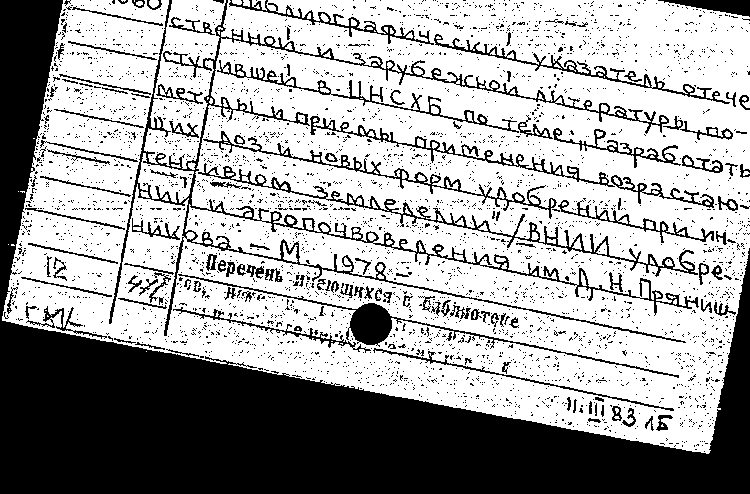 Библиографический указатель отече
ственной и зарубежной литературы, по-
ступившей в ЦНСХБ по теме: „Разработать
методы и приемы применения возрастаю-
щих доз и новых форм удобрений при ин-
тенсивном земледелии" / ВНИИ удобре-
ний и агропочвоведения им. Д. Н. Пряниш-
никова. – М., 1978 –
Перечень имеющихся в библиотеке
12
II. III 83 ЛБ